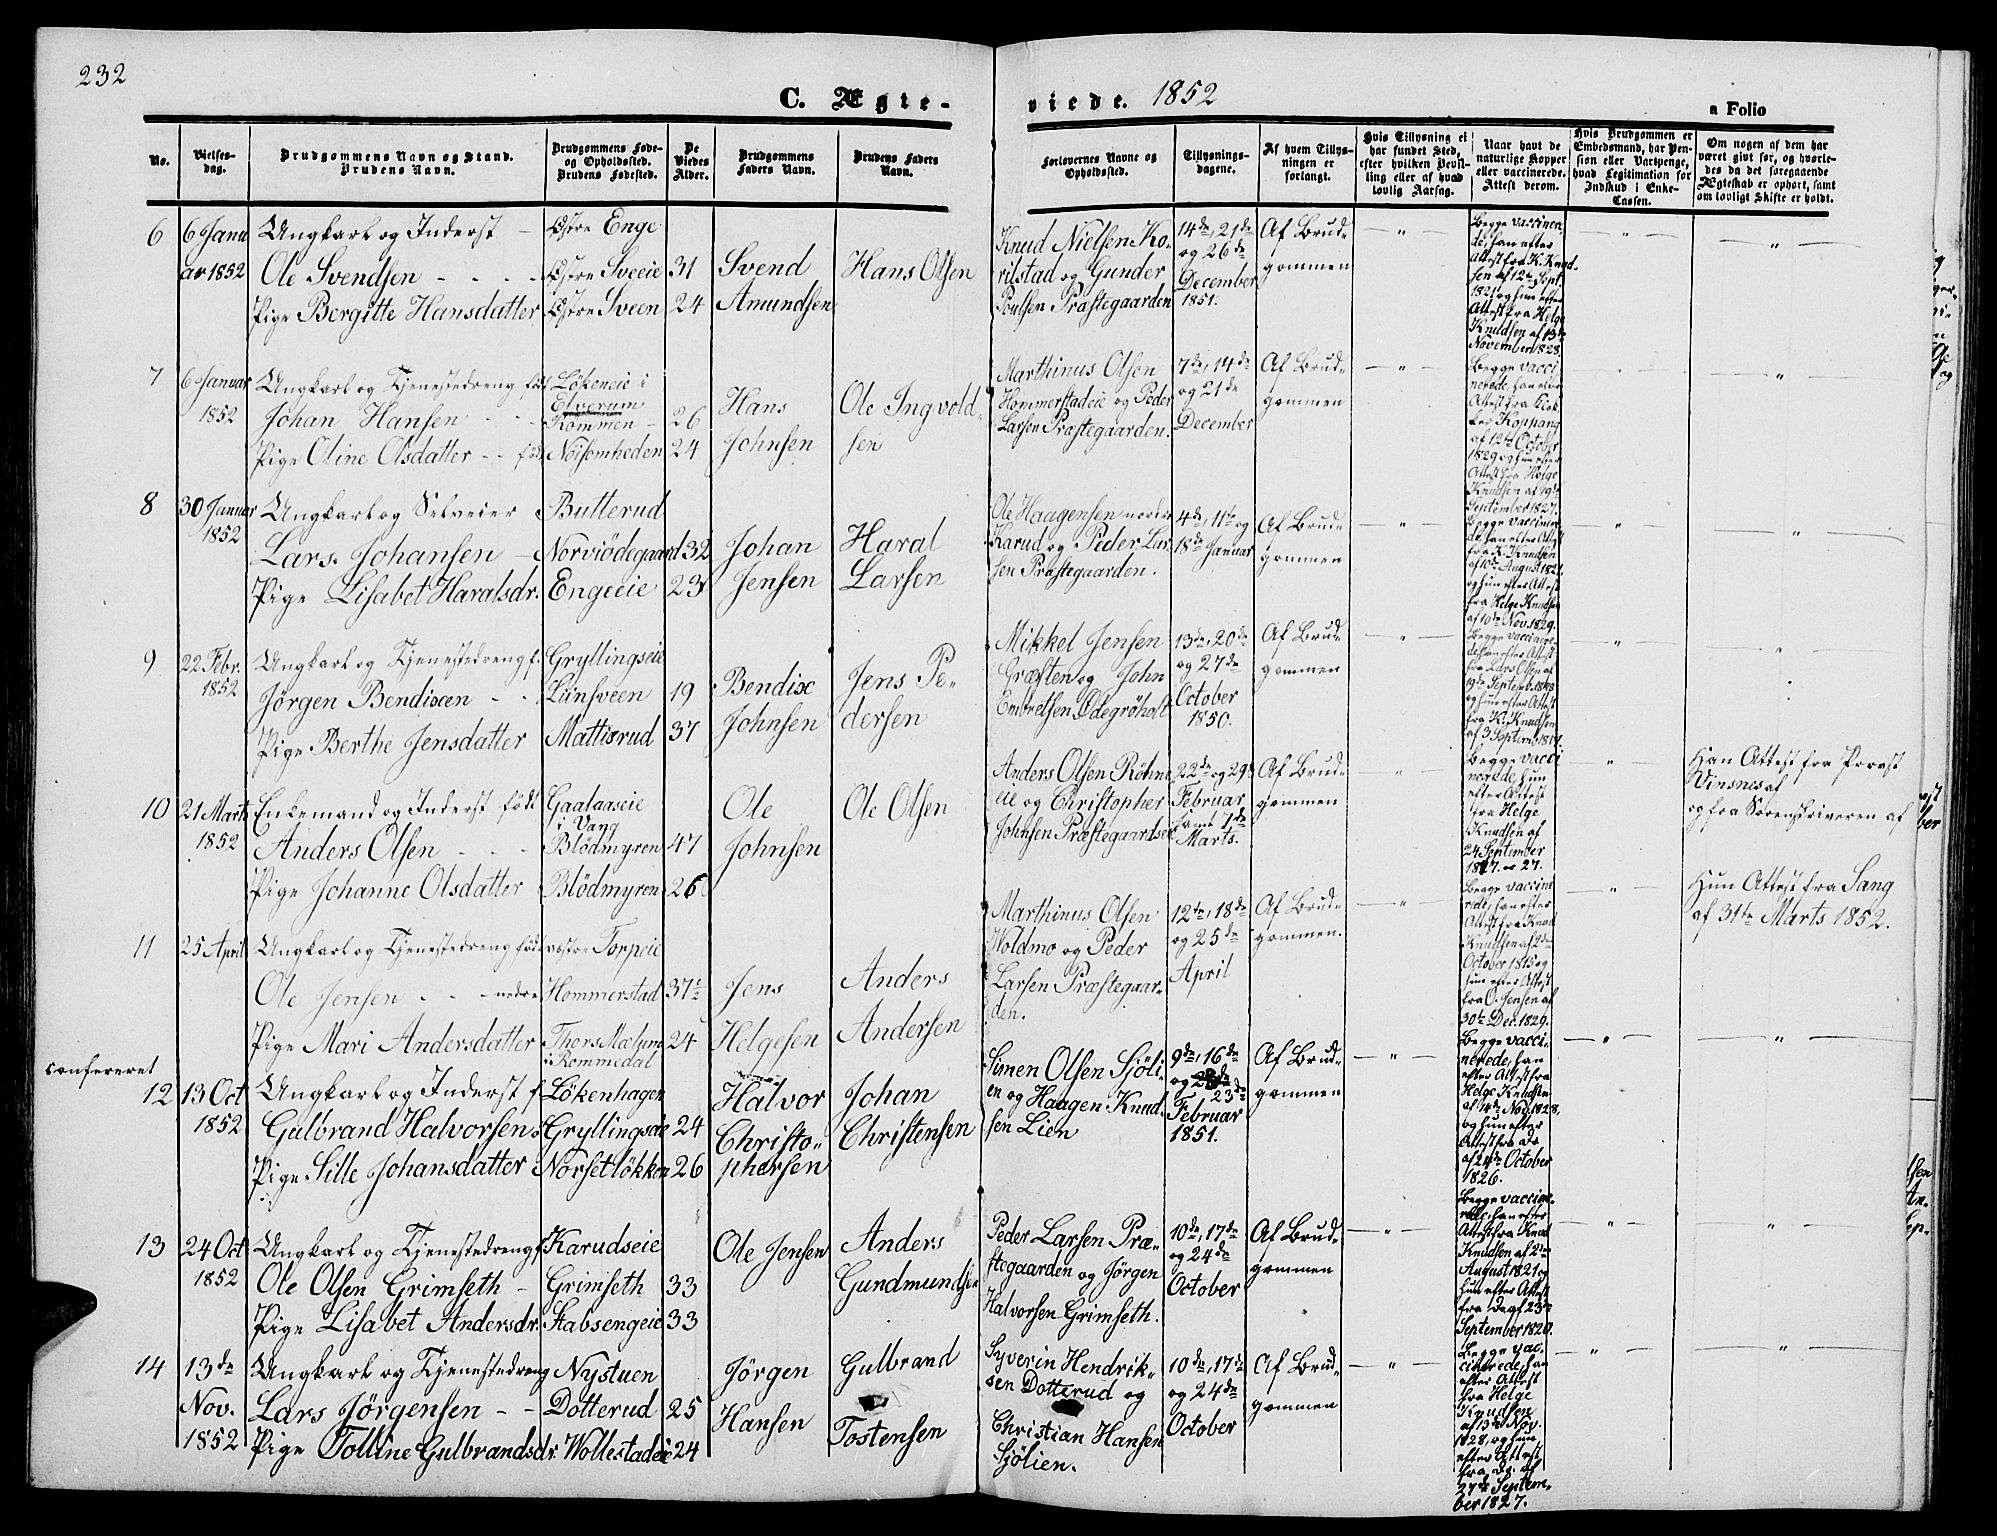 232
C. Ægte-
viede. 1852
a Folio
No.
Vielses-
dag.
Brudgommens Navn og Stand.
Brudens Navn.
Brudgommens Føde-
og Opholdssted.
Brudens Fødested.
De
Viedes
Alder.
Brudgommens
Faders Navn.
Brudens Faders
Navn.
Forlovernes Navne og
Opholdssted.
Tillysnings-
dagene.
Af hvem Tillys-
ningen er
forlangt.
Hvis Tillysning ei
har fundet Sted,
efter hvilken Bevil-
ling eller af hvad
lovlig Aarsag.
Naar havt de
naturlige Kopper
eller vaccinerede.
Attest derom.
Hvis Brudgommen er
Embedsmand, har Pen-
sion eller Vartpenge,
hvad Legitimation for
Indskud i Enke-
Cassen.
Om nogen af dem har
været givt før, og hvorle-
des da det foregaaende
Ægteskab er ophørt, samt
om lovligt Skifte er holdt.
6
6 Janu
ar 1852
Ungkarl og Inderst
Ole Svendsen
Pige Bergitte Hansdatter
Østre Enge
Østre Sveeie
Østre Sveen
31
24
Svend
Amundsen
Hans Olsen
Knud Nielsen Ko-
rilstad og Gunder
Poulsen Præstegaarden
14de, 21de
og 26de
December
1851.
Af Brud-
gommen
Begge vaccinere
de, han efter
Attest fra K. Knud-
sen af 12te Sept.
1821 og hun efter
Attest fra Helge
Knudsen af 13de
November 1828.
7
6 Januar
1852
Ungkarl og Tjenestedreng født
Johan Hansen
Pige Oline Olsdatter født
Lökeneie i
Elverum
Rommen
Nöisomheden
26
24
Hans
Johnsen
Ole Ingvold-
sen
Marthinus Olsen
Hommerstadeie og Peder
Larsen Præstegaarden.
7de, 14de
og 21de
December
Af Brud-
gommen
Begge vacci
nerede, han efter
Attest fra Klok
ker Koppang
af 12te October
1829 og hun efter
Attest fra Helge
Knudsen af 19de
September 1827.
8
30 Januar
1852
Ungkarl og Selveier
Lars Johansen
Pige Lisabet Haralsdr.
Butterud
Norviödegaard
Engeeie
32
23
Johan
Jensen
Haral
Larsen
Ole Haagensen nordre
Karud og Peder Lar-
sen Præstegaarden.
4de, 11te og
18de Januar
Af Brud-
gommen
Begge vaccinere
de, han efter Attest
fra K. Knudsen
af 10de August 1821
og hun efter Attest
fra Helge Knudsen
af 10de Nov. 1829.
9
22 Febr.
1852
Ungkarl og Tjenestedreng f.
Jørgen Bendixen
Pige Berthe Jensdatter
Gryllingseie
Lunsveen
Mattisrud
19
37
Bendix
Johnsen
Jens Pe-
dersen
Mikkel Jensen
Græsten og John
Embretsen Ødegröholt
13de, 20de
og 27de
October
1850.
Af Brud-
gommen
Begge vaccinere
de han efter Attest
fra Lars Olsen af
19de Septemb.
og hun efter Attest
fra K. Knudsen
af 3 Septemb.
10
21 Marts
1852
Enkemand og Inderst født
Anders Olsen
Pige Johanne Olsdatter
Gaalaaseie
i Vang
Blödmyren
Blödmyren
47
26
Ole
Johnsen
Ole Olsen
Anders Olsen Röhne
eie og Christopher
Johnsen Præstegaardseie
22de og 29de
Februar
samt 7de
Marts.
Af Brud-
gommen
Begge vacci
nerede, hun
efter Attest
fra Helge
Knudsen af
24 September
Han Attest fra Provst
Vinsnes af
og fra Sorenskriveren af
Hun Attest fra Sang
af 31te Marts 1852.
11
25 April
Ungkarl og Tjenestedreng født
Ole Jensen
Pige Mari Andersdatter
vestre Torpeie
nedre Hommerstad
Thors Mælum
i Rommedal
37
24
Jens
Helgesen
Anders
Andersen
Marthinus Olsen
Woldmo og Peder
Larsen Præstegaar-
den.
12te, 18de
og 25de
April
Af Brud-
gommen.
Begge vaccine
rede, han efter
Attest fra Knud
Knudsen af 2den
October 1815 og
hun efter Attest
fra O. Jensen af
30te Dec. 1829.
confereret
12
13 Oct
1852
Ungkarl og Inderst f.
Gulbrand Halvorsen
Pige Sille Johansdatter
Lökenhagen
Gryllingseie
Norsetlökken
24
26
Halvor
Christo-
phersen
Johan
Christensen
Simen Olsen Sjöli-
en og Haagen Knud-
sen Lien
9de, 16de
og 23de
Februar
1851.
Af Brud-
gommen
Begge vacci-
nerede, han
efter Attest fra
Helge Knudsen
af 14de Nov. 1828,
og hun efter
Attest fra do
af 24de October
1826.
13
24 Oct
1852
Ungkarl og Tjenestedreng f.
Ole Olsen Grimseth
Pige Lisabet Andersdr.
Karudseie
Grimseth
Stabsengeie
33
33
Ole Jensen
Anders
Gundmundsen
Peder Larsen Præ-
stegaarden og Jörgen
Halvorsen Grimseth.
10de, 17de
og 24de
October
Af Brud-
gommen
Begge vaccine-
rede, han efter
Attest fra Knud
Knudsen af 2den
August 1821 og
hun efter Attest
fra do af 23de
September 1820.
14
13de
Nov.
1852
Ungkarl og Tjenestedreng
Lars Jörgensen
Pige Tolline Gulbrandsdr.
Nystuen
Dotterud
Wollestadeie
25
24
Jörgen
Hansen
Gulbrand
Tostensen
Syverin Hendrik-
sen Dotterud og
Christian Hansen
Sjölien.
10de, 17de
og 24de
October
Af Brud-
gommen
Begge vac-
cinerede, han
efter Attest
fra Helge
Knudsen
af 13de Nov.
1828, og hun
efter Attest
fra do. af
27de Septem-
ber 1827.